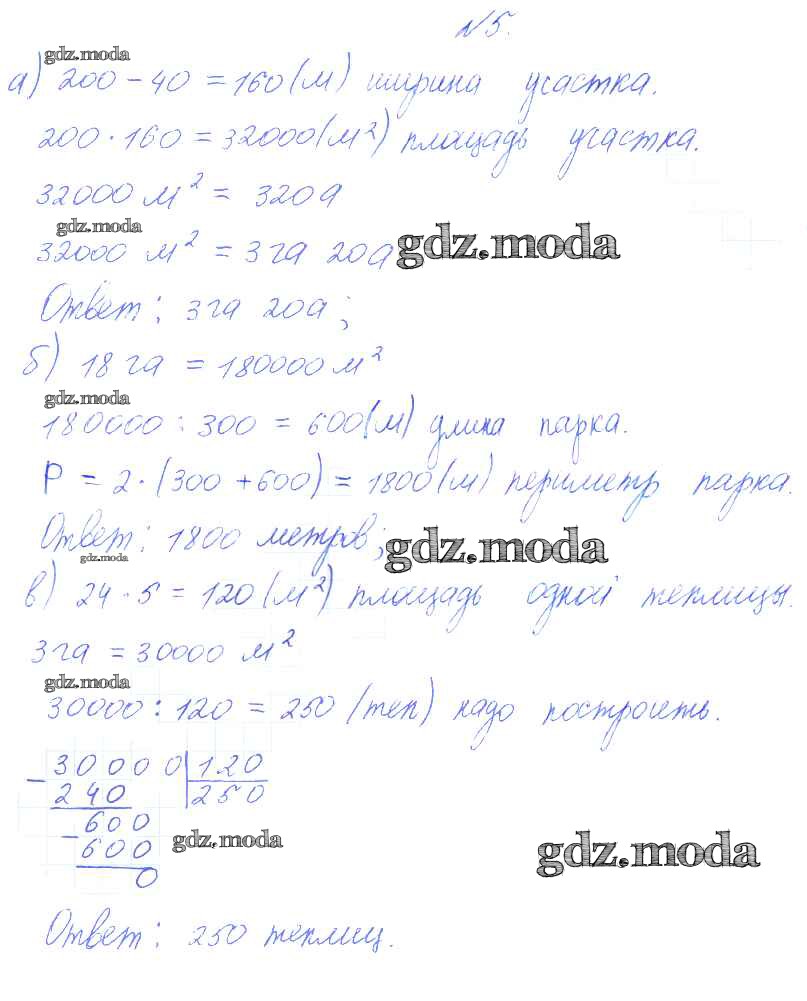 №5.
gdz.moda
а) 200 - 40 = 160 (м) ширина участка.
200 · 160 = 32000 (м²) площадь участка.
32000 м² = 320а
gdz.moda
32000 м² = 3га 20а
gdz.moda
Ответ: 3га 20а;
б) 18га = 180000 м²
gdz.moda
180000 : 300 = 600 (м) длина парка.
P = 2 · (300 + 600) = 1800 (м) периметр парка.
Ответ: 1800 метров;
gdz.moda
gdz.moda
в) 24 · 5 = 120 (м²) площадь одной теплицы.
3га = 30000 м²
gdz.moda
30000 : 120 = 250 (теп) надо построить.
- 30000 | 120
240 | 250
- 600
gdz.moda
600
gdz.moda
0
Ответ: 250 теплиц.